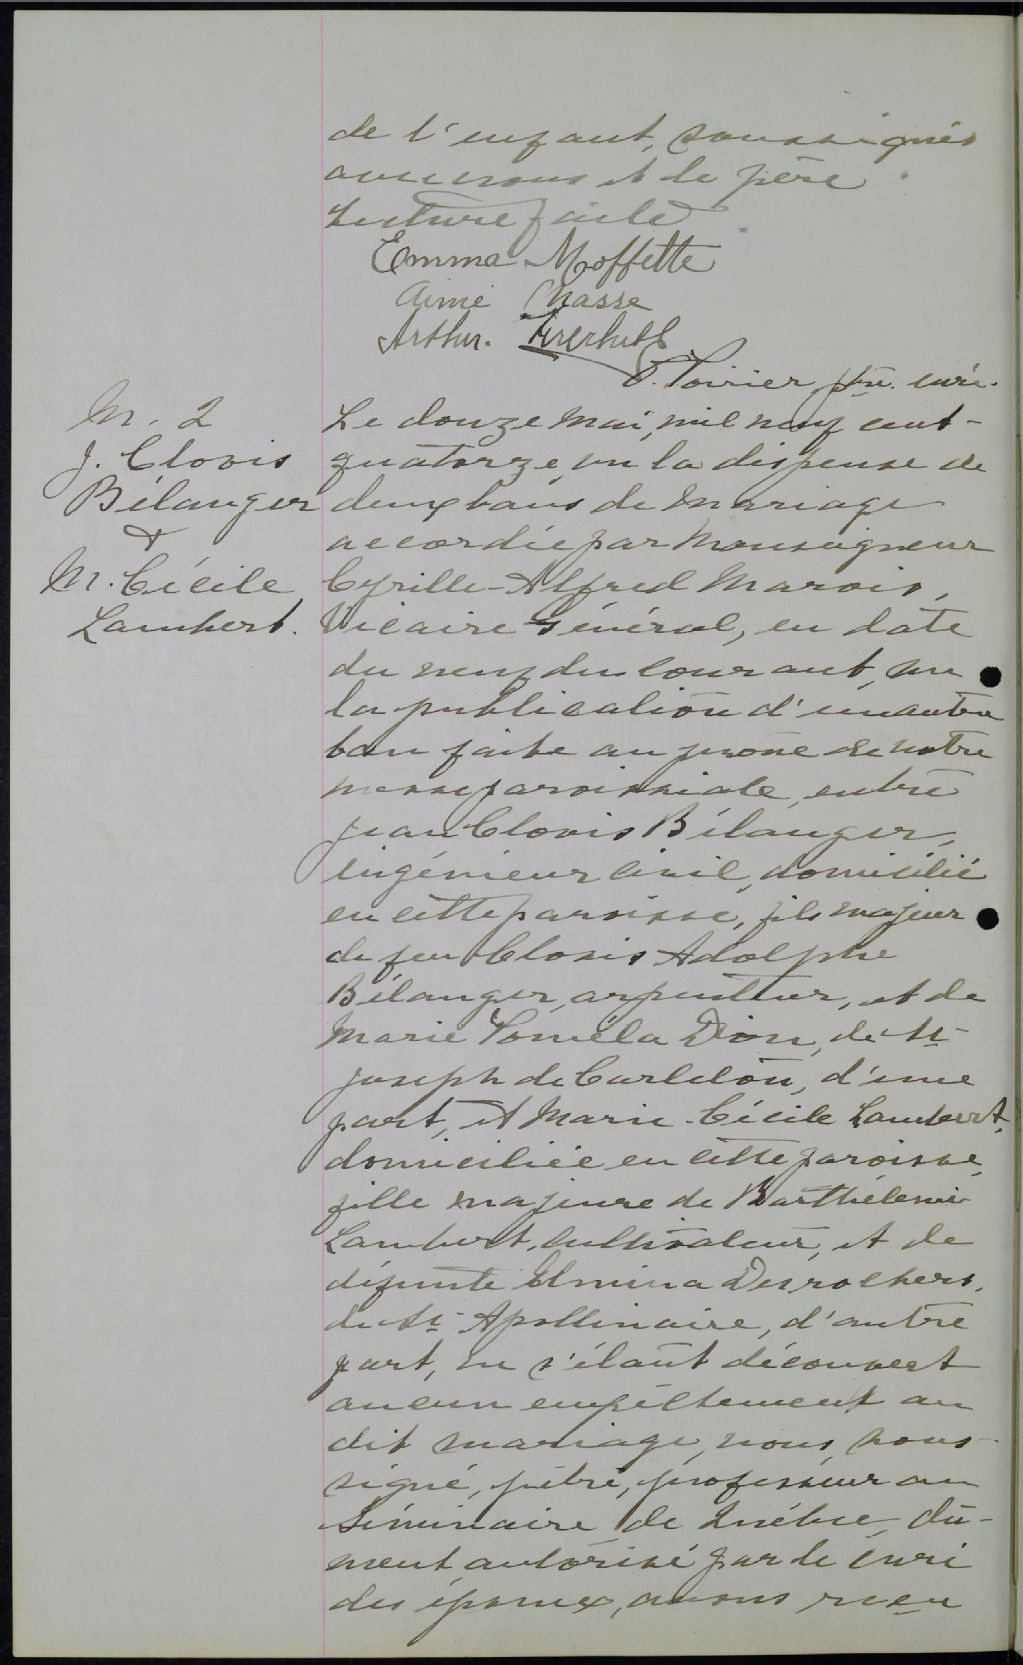 de l'enfant, soussignés
avec nous et le père.
Lecture faite
Emma Moffette
Aimé Chasse
Arthur
O. Poirier ptre. curé.
M. 2
J. Clovis
Bélanger
&
M. Cécile
Lambert.
Le douze mai, mil neuf cent-
quatorze, vu la dispense de
deux bans de mariage
accordée par Monseigneur
Cyrille-Alfred Marois,
Vicaire Général, en date
du neuf du courant, vu
la publication d'un autre
ban faite au prône de notre
messe paroissiale, entre
Jean Clovis Bélanger,
Ingénieur Civil, domicilié
en cette paroisse, fils majeur
de feu Clovis Adolphe
Bélanger, arpenteur, et de
Marie Dion, de St-
Joseph de Carleton, d'une
part, et Marie-Cécile Lambert,
domiciliée en cette paroisse,
fille majeure de Barthélemi
Lambert, cultivateur, et de
défunte Elmina Desrochers,
de St-Apollinaire, d'autre
part, ne s'étant découvert
aucun empêchement au
dit mariage, nous, sous-
signé, prêtre, professeur au
Séminaire de Québec, dû-
ment autorisé par le curé
des époux, avons reçu